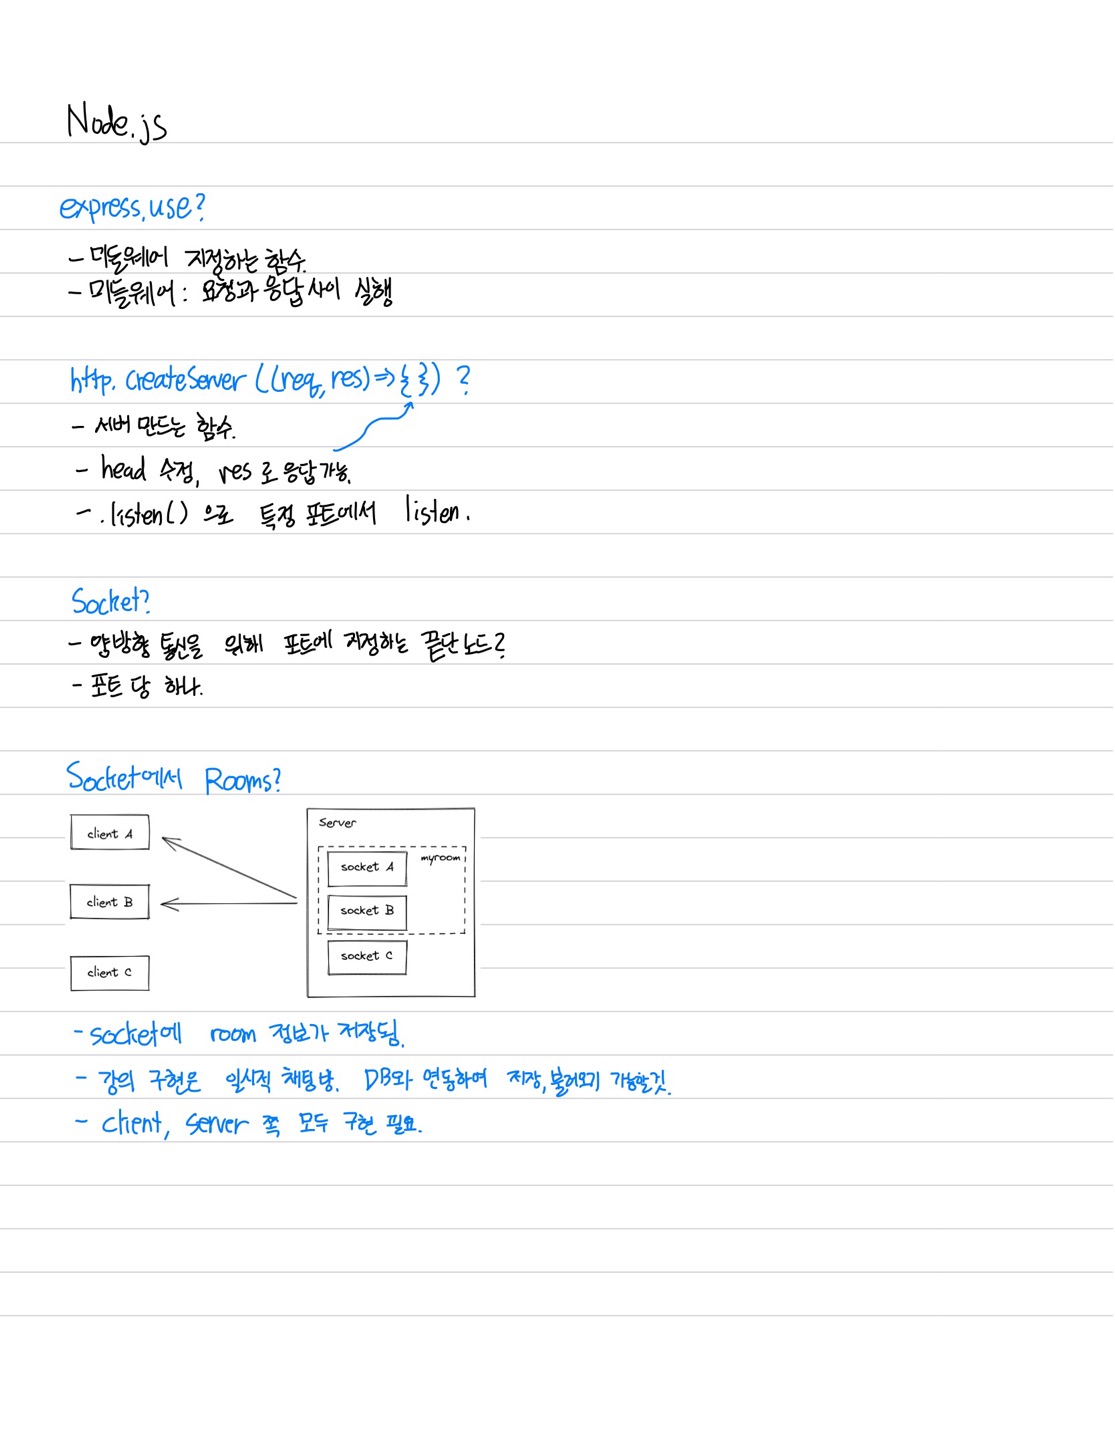 Node.js
express.use?
- 미들웨어 지정하는 함수.
- 미들웨어 : 요청과 응답 사이 실행
http. createServer ((req, res)=>{ }) ?
- 서버 만드는 함수.
- head 수정, res 로 응답 가능.
- .listen() 으로 특정 포트에서 listen.
Socket?
- 양방향 통신을 위해 포트에 지정하는 끝단 노드?
- 포트 당 하나.
Socket에서 Rooms?
client A
client B
client C
Server
myroom
socket A
socket B
socket C
- socket에 room 정보가 저장됨.
- 강의 구현은 일시적 채팅방. DB와 연동하여 저장, 불러오기 가능할것.
- client, server 쪽 모두 구현 필요.